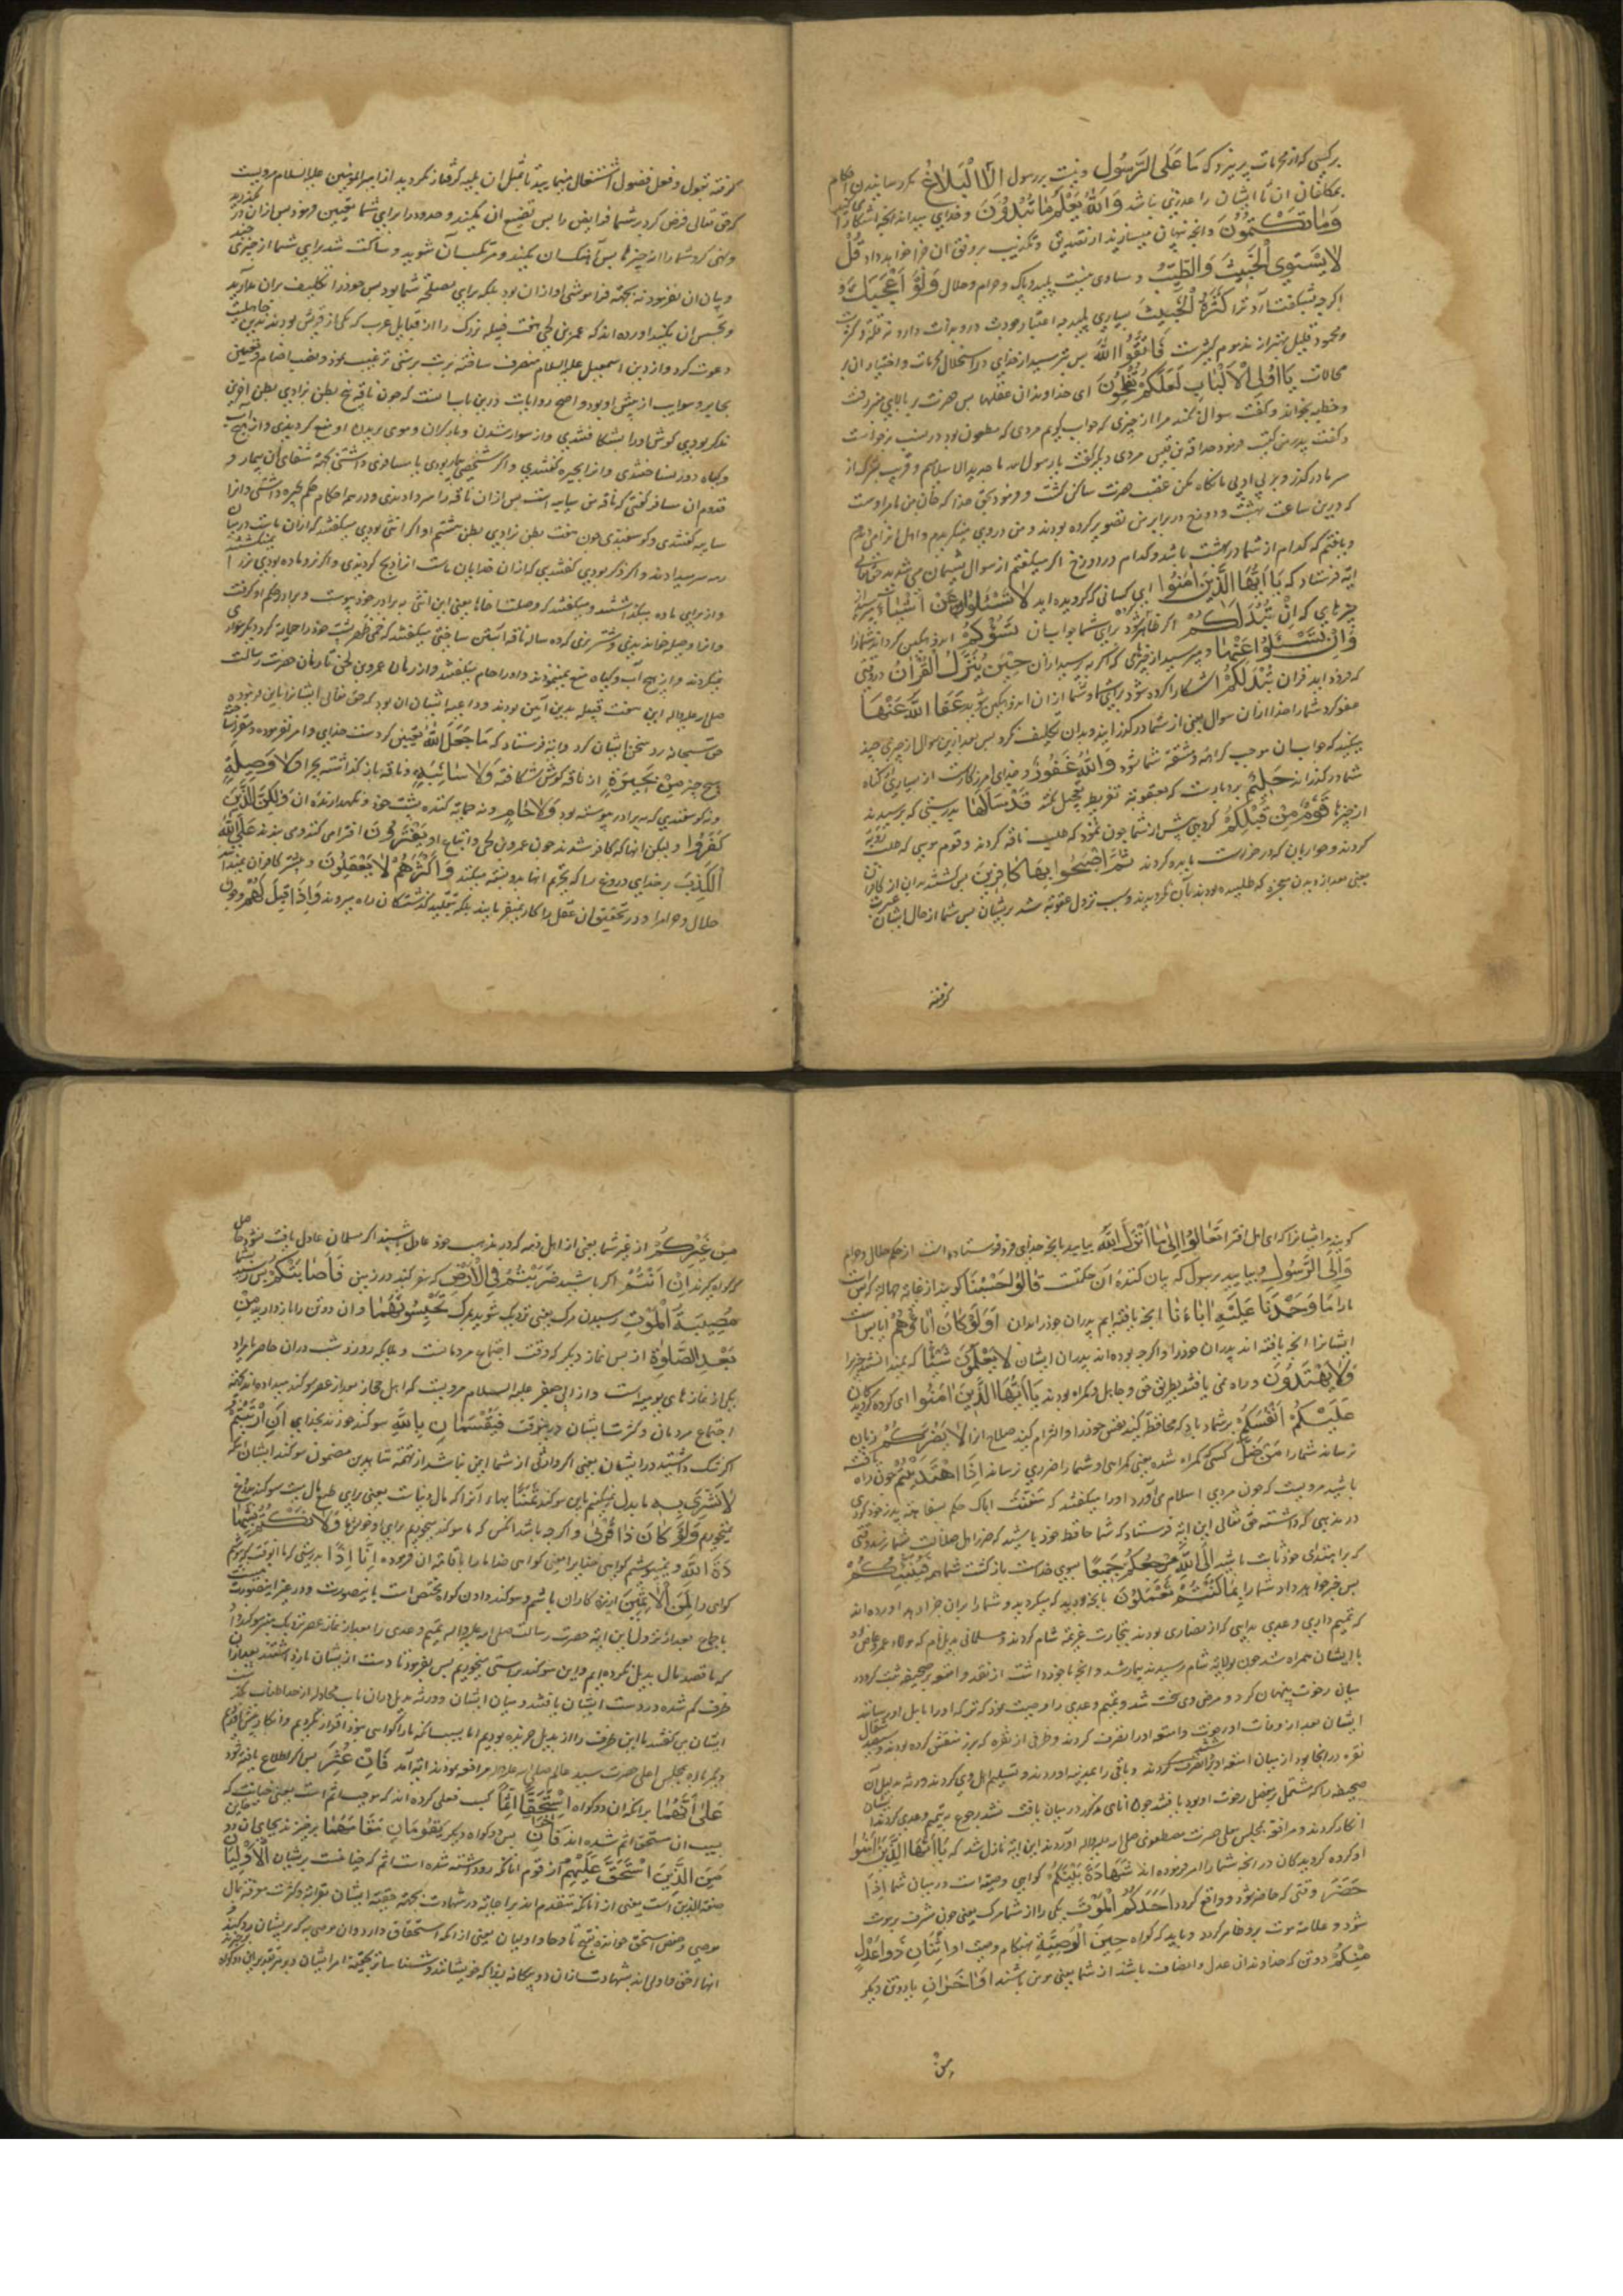 بر کسی که از محرمات پرهیزد که مَا عَلَی الرَّسُولِ و نیست بر رسول اِلَّا الْبَلَاغُ مکر رسانیدن احکام
بمکلفان ان تا ایشان را عذری نباشد وَاللّٰهُ یَعْلَمُ مَا تُبْدُونَ و خدای میداند انچه اشکارا می کنید
وَمَا تَکْتُمُونَ و انچه پنهان میسازید از تصدیق و تکذیب بر وفق ان جزا خواهد داد قُلْ
لَا یَسْتَوِی الْخَبِیثُ وَالطَّیِّبُ و مساوی نیست پلید و پاک و حرام و حلال وَلَوْ اَعْجَبَكَ و
اکرچه بشکفت آرد ترا کَثْرَةُ الْخَبِیثِ بسیاری پلید چه اعتبار بجودت و ردائت دارد نه قلت و کثرت
و محمود قلیل بهتر از مذموم کثیرست فَاتَّقُوا اللّٰهَ پس بترسید از خدای در استحلال محرمات و اختیار ان بر
محللات یَا اُولِی الْاَلْبَابِ لَعَلَّکُمْ تُفْلِحُونَ ای خداوندان عقلها پس حضرت بر بالای منبر رفت
و خطبه بخواند و کفت سوال نکند مرا از چیزی که جواب کویم مردی که مطعون بود در نسب برخواست
و کفت پدر من کیست فرمود حذافه بن قیس مردی دیکر کفت یا رسول الله
که درین ساعت بهشت و دوزخ در برابر من تصویر کرده بودند و من در وی مینکریدم
و یافتم که کدام از شما در بهشت باشد و کدام در دوزخ اکر میکفتم از سوال پشیمان می شدید حق تعالی
ایه فرستاد که یَا اَیُّهَا الَّذِینَ اٰمَنُوا ای کسانی که کرویده اید لَا تَسْـَٔلُوا عَنْ اَشْیَاءَ مپرسید از
چیزهایی که اِنْ تُبْدَ لَکُمْ اکر ظاهر شود برای شما جواب ان تَسُؤْکُمْ اندوهکین کرداند شما را
وَاِنْ تَسْـَٔلُوا عَنْهَا و اکر بپرسید از ان حِینَ یُنَزَّلُ الْقُرْاٰنُ در وقتی
که فرود اید قران تُبْدَ لَکُمْ اشکارا کرده شود برای شما و شما از ان اندوهکین شوید عَفَا اللّٰهُ عَنْهَا
عفو کرد شما را خدا از ان سوال یعنی از شما درکذرانید و بدان تکلیف نکرد پس بعد ازین سوال از چیزی
مکنید که جواب ان موجب کراهة و مشقة شما شود وَاللّٰهُ غَفُورٌ و خدای امرزکارست از بسیاری کناه
شما درکذراند حَلِیمٌ بردبارست که بعقوبة تفریط تعجیل نکند قَدْ سَاَلَهَا بدرستی که پرسیدند
از چیزها قَوْمٌ مِنْ قَبْلِکُمْ کروهی پیش از شما چون ثمود که طلب ناقه کردند و قوم موسی که طلب رؤیة
کردند و حواریان که درخواست مایده کردند ثُمَّ اَصْبَحُوا بِهَا کَافِرِینَ پس کشتند بدان از کافران
یعنی بعد از دیدن معجزه که طلبیده بودند بآن نکرویدند و سبب نزول عقوبة شد بریشان پس شما از حال ایشان عبرت
کرفته
کرفته بقبول و فعل فضول اشتغال منمایید تا قبل ان بلیه کرفتار نکردید از امیرالمؤمنین علیه السلام مرویست
که حق تعالی فرض کرد بر شما فرایض را پس تضییع ان مکنید و حدود را برای شما تعیین فرمود پس از ان درمکذرید
و نهی کرد شما را از چیزها پس انتهاک ان مکنید و مرتکب آن شوید و ساکت شد برای شما از چیزی چند
و بیان ان نفرمود نه بجهة فراموشی او از ان بود بلکه برای مصلحة شما بود پس خود را تکلیف بران مدارید
و تجسس ان مکنید اورده اند که عمرو بن لحی هفت قبیله بزرک را از قبایل عرب که یکی از قریش بودند بدین جاهلیت
دعوت کرد و از دین اسمعیل علیه السلام منحرف ساخته به بت پرستی ترغیب نمود و نصب اصنام و تعیین
بحایر و سوایب از پیش او بود و اصح روایات درین باب انست که چون ناقه پنج بطن بزادی بطن اخرین
مذکر بودی کوش او را بشکافتندی و از سوار شدن و بار کران و موی بریدن او منع کردندی و از هیچ آب
و کیاه دور نساختندی و او را بحیره کفتندی و اکر شخصی بیمار بودی یا مسافری داشتی بجهة شفای ان بیمار و
قدوم ان مسافر کفتی که ناقه من سایبه است پس از ان ناقه را سر دادندی و در همه احکام حکم بحیره داشتی و انرا
سایبه کفتندی و کوسفندی چون هفت بطن بزادی بطن هشتم او اکر انثی بودی میکفتند که از ان ماست در میان
رمه سر میدادند و اکر ذکر بودی کفتندی که از ان خدایان ماست انرا ذبح کردندی و اکر نر و ماده بودی نر را
و از برای ماده میکذاشتند و میکفتند که وصلت اخاها یعنی این انثی به برادر خود پیوست و برادر حکم او کرفت
و انرا وصیله خواندندی و شتر نری که ده ساله ناقه ابستن ساختی میکفتند که حمی ظهره پشت خود را حمایة کرد دیکر سواری
میکردند و از هیچ آب و کیاه منع نمینمودند و او را حام میکفتند و از زمان عمرو بن لحی تا زمان حضرت رسالت
صلی الله علیه واله این هفت قبیله بدین آیین بودند و داعیه ایشان ان بود که حق تعالی ایشانرا باین فرموده
حق سبحانه رد سخن ایشان کرد و ایة فرستاد که مَا جَعَلَ اللّٰهُ تعیین نکرده است خدای و امر نفرموده و مقرر نساخته
هیچ چیز مِنْ بَحِیرَةٍ از ناقه کوش شکافته وَلَا سَائِبَةٍ و نه ناقه باز کذاشته بچرا وَلَا وَصِیلَةٍ
و نه کوسفندی که به برادر پیوسته بود وَلَا حَامٍ و نه حمایة کننده پشت خود و نکهدارنده ان وَلٰکِنَّ الَّذِینَ
کَفَرُوا و لیکن انها که کافر شدند چون عمرو بن لحی و اتباع او یَفْتَرُونَ افترا می کنند و می بندند عَلَی اللّٰهِ
الْکَذِبَ بر خدای دروغ را که تحریم انها بدو نسبة میکنند وَاَکْثَرُهُمْ لَا یَعْقِلُونَ و بیشتر کافران نمیدانند
حلال و حرام را و در تحقیق ان عقل را کار نمیفرمایند بلکه بتقلید کذشتکان راه میروند وَاِذَا قِیلَ لَهُمْ و چون
کویند مر ایشانرا که ای اهل افترا تَعَالَوْا اِلٰی مَا اَنْزَلَ اللّٰهُ بیایید بانچه خدای فرو فرستاده است از حکم حلال و حرام
وَاِلَی الرَّسُولِ و بیایید برسول که بیان کننده آن حکمست قَالُوا حَسْبُنَا کویند از غایة جهالة که بس است
ما را مَا وَجَدْنَا عَلَیْهِ اٰبَاءَنَا انچه یافته ایم پدران خود را بدان اَوَلَوْ کَانَ اٰبَاؤُهُمْ ایا بس است
ایشانرا انچه یافته اند پدران خود را و اکرچه بوده اند پدران ایشان لَا یَعْلَمُونَ شَیْئًا که نمیدانستند چیزی را
وَلَا یَهْتَدُونَ و راه نمی یافتند بطریق حق و جاهل و کمراه بودند یَا اَیُّهَا الَّذِینَ اٰمَنُوا ای کروه کرویدکان
عَلَیْکُمْ اَنْفُسَکُمْ بر شما باد که محافظة کنید نفس خود را و التزام کنید صلاح انرا لَا یَضُرُّکُمْ زیان
نرساند شما را مَنْ ضَلَّ کسی که کمراه شده یعنی کمراهی او شما را ضرری نرساند اِذَا اهْتَدَیْتُمْ چون راه یافتید
باشید مرویست که چون مردی اسلام می آورد او را میکفتند که سَفَّهْتَ اباک حکم بسفاهة پدر خود کردی
در مذهبی که داشته حق تعالی این ایة فرستاد که شما حافظ خود باشید که ضرر اهل ضلالت بشما نرسد وقتی
که بر اهتدای خود ثابت باشید اِلَی اللّٰهِ مَرْجِعُکُمْ جَمِیعًا بسوی خداست بازکشت شما همه فَیُنَبِّئُکُمْ
پس خبر خواهد داد شما را بِمَا کُنْتُمْ تَعْمَلُونَ بانچه بودید که میکردید و شما را بران جزا دهد اورده اند
که تمیم داری و عدی بدایی که از نصاری بودند بتجارت عزیمة شام کردند و مسلمانی بدیل نام که مولاء عمرو عاص بود
با ایشان همراه شد چون بولایة شام رسیدند بیمار شد و انچه با خود داشت از نقد و امتعه بر صحیفه ثبت کرد و در
میان رخوت پنهان کرد و مرض وی سخت شد و تمیم و عدی را وصیت نمود که ترکه او را باهل او رسانند
ایشان بعد از وفات او رخوت و امتعه او را تصرف کردند و ظرفی از نقره که بزر منقش کرده بودند و سیصد مثقال
نقره در انجا بود از میان امتعه او تصرف کردند و باقی را بمدینه اوردند و تسلیم اهل وی کردند ورثه بدیل آن
صحیفه را که مشتمل بر تفصیل رخوت او بود یافتند چون انای مذکور در میان یافت نشد رجوع به تمیم و عدی کردند ایشان
انکار کردند و مرافعه بمجلس معلی حضرت مصطفوی صلی الله علیه واله اوردند این ایة نازل شد که یَا اَیُّهَا الَّذِینَ اٰمَنُوا
ای کروه کرویدکان در انچه شما را امر فرموده اند شَهَادَةُ بَیْنِکُمْ کواهی وصیة است در میان شما اِذَا
حَضَرَ وقتی که حاضر شود و واقع کردد اَحَدَکُمُ الْمَوْتُ یکی را از شما مرک یعنی چون مشرف بر موت
شود و علامة موت برو ظاهر کردد و باید که کواه حِینَ الْوَصِیَّةِ هنکام وصیت او اثْنَانِ ذَوَا عَدْلٍ
مِنْکُمْ دو تن که خداوندان عدل و انصاف باشند از شما یعنی مومن باشند اَوْ اٰخَرَانِ یا دو تن دیکر
مِنْ
مِنْ غَیْرِکُمْ از غیر شما یعنی از اهل ذمه که در مذهب خود عادل باشند اکر مسلمان عادل یافت نشود
که کواه کیرند اِنْ اَنْتُمْ اکر باشید ضَرَبْتُمْ فِی الْاَرْضِ که سفر کنید در زمین فَاَصَابَتْکُمْ پس رسد بشما
مُصِیبَةُ الْمَوْتِ رسیدن مرک یعنی نزدیک شوید بمرک تَحْبِسُونَهُمَا و ان دو تن را بازدارید مِنْ
بَعْدِ الصَّلٰوةِ از پس نماز دیکر که وقت اجتماع مردمانست و ملایکه روز و شب در ان حاضر یا مراد
یکی از نمازهای یومیه است و از ابی جعفر علیه السلام مرویست که اهل حجاز بعد از عصر سوکند میدادند بجهة
اجتماع مردمان و کثرت ایشان درینوقت فَیُقْسِمَانِ بِاللّٰهِ سوکند خورند بخدای اِنِ ارْتَبْتُمْ
اکر شک داشتید در ایشان یعنی اکر وارثی از شما این نباشد از تهمة شاهدین مضمون سوکند ایشان انکه
لَا نَشْتَرِی بِهِ ما بدل نمیکنیم باین سوکند ثَمَنًا بهاء آنرا که مال دنیاست یعنی برای طمع مال بیت سوکند بدروغ
نمیخوریم وَلَوْ کَانَ ذَا قُرْبٰی و اکرچه باشد انکس که ما سوکند میخوریم برای او خویش ما وَلَا نَکْتُمُ شَهَادَةَ
اللّٰهِ و نمیپوشیم کواهی خدایرا یعنی کواهی خدا ما را باقامة ان فرموده اِنَّا اِذًا بدرستی که ما انوقت که بپوشیم
کواهی را لَمِنَ الْاٰثِمِینَ از بزه کاران باشیم و سوکند دادن کواه مختص است باینصورت و در غیر اینصورت نیست
باجماع بعد از نزول این ایة حضرت رسالت صلی الله علیه واله تمیم و عدی را بعد از نماز عصر نزدیک منبر سوکند داد
که ما قصد مال بدیل نکرده ایم و این سوکند براستی میخوریم پس بفرمود تا دست از ایشان بازداشتند بعد از ان
ظرف کم شده در دست ایشان یافتند و میان ایشان و ورثه بدیل در ان باب مجادله از حد اطناب بگذشت
ایشان میکفتند ما این ظرف را از بدیل خریده بودیم اما بسبب انکه ما را کواهی نبود اقرار نکردیم و انکار پیش اوردیم
دیکر باره بمجلس اعلی حضرت سید عالم صلی الله علیه واله مرافعه نمودند ایة آمد فَاِنْ عُثِرَ پس اکر اطلاع یافته شود
عَلٰی اَنَّهُمَا برانکه ان دو کواه اسْتَحَقَّا اِثْمًا کسب فعلی کرده اند که موجب اثم است یعنی خیانت که
بسبب ان مستحق اثم شده اند فَاٰخَرَانِ پس دو کواه دیکر یَقُومَانِ مَقَامَهُمَا برخیزند بجای ان دو
مِنَ الَّذِینَ اسْتَحَقَّ عَلَیْهِمْ از قوم انانکه رد داشته شده است اثم که خیانتست بریشان الْاَوْلَیَانِ
صفة الذین است یعنی از انانکه متقدم اند بر اجانب در شهادت بجهة حقیة ایشان بقرابة و کثرت معرفة بحال
انها احق و اولی اند بشهادت از ان دو بیکانه